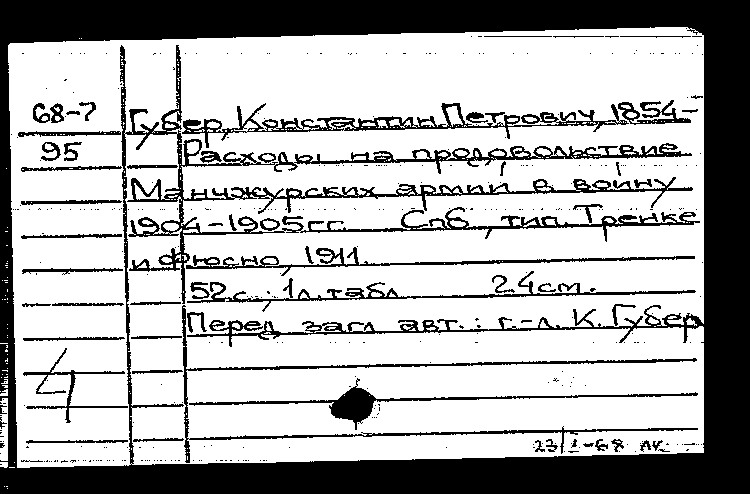 68-7 Губер, Константин Петрович, 1854-
95 Расходы на продовольствие
Манчжурских армий в войну
1904-1905 гг. Спб, тип. Тренке
и Фюсно, 1911.
52 с.; 1 л. табл 24 см.
Перед загл авт.: г.-л. К. Губер
4
23/I-68 лк